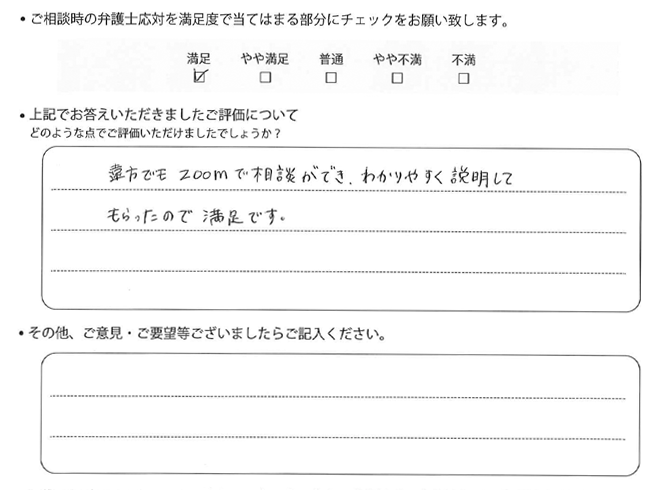 • ご相談時の弁護士応対を満足度で当てはまる部分にチェックをお願い致します。
満足 やや満足 普通 やや不満 不満
☑ ☐ ☐ ☐ ☐
• 上記でお答えいただきましたご評価について
どのような点でご評価いただけましたでしょうか？
遠方でも zoomで相談ができ、わかりやすく説明して
もらったので 満足です。
• その他、ご意見・ご要望等ございましたらご記入ください。